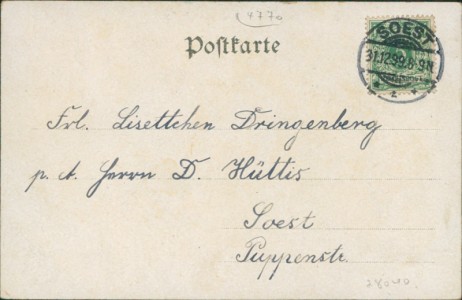 4770
Postkarte
SOEST
31.12.99.8-9N.
Frl. Lisettchen Dringenberg
p. A. Herrn D. Hüttis
Soest
Puppenstr.